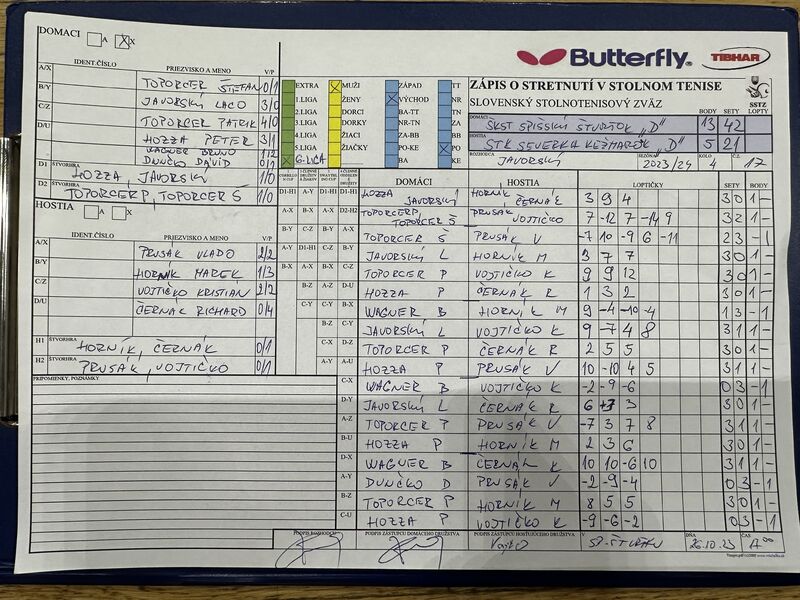 DOMACI A X
Butterfly. TIBHAR
A/X IDENT.ČÍSLO PRIEZVISKO A MENO V/P
B/Y TOPORCER ŠTEFAN 0/1
C/Z JAVORSKÝ LACO 3/0
D/U TOPORCER PATRIK 4/0
HOZZA PETER 3/1
WAGNER BRUNO 1/2
DUNČKO DÁVID 0/1
D1 ŠTVORHRA HOZZA, JAVORSKÝ 1/0
D2 ŠTVORHRA TOPORCER P, TOPORCER Š 1/0
EXTRA MUŽI ZÁPAD TT
1.LIGA ŽENY VÝCHOD NR
2.LIGA DORCI BA-TT TN
3.LIGA DORKY NR-TN ZA
4.LIGA ŽIACI ZA-BB BB
5.LIGA ŽIAČKY PO-KE PO
6-LIGA BA KE
ZÁPIS O STRETNUTÍ V STOLNOM TENISE SSTZ
SLOVENSKÝ STOLNOTENISOVÝ ZVÄZ BODY SETY LOPTY
DOMÁCI ŠKST SPIŠSKÝ ŠTVRTOK "D" 13 42
HOSTIA STK SEVERKA KEŽMAROK "D" 5 21
ROZHODCA JAVORSKÝ SEZÓNA 2023/24 KOLO 4 Č.Z. 17
HOSTIA A X
IDENT.ČÍSLO PRIEZVISKO A MENO V/P
A/X PRUSÁK VLADO 2/2
B/Y HORNÍK MAREK 1/3
C/Z VOJTIČKO KRISTIÁN 2/2
D/U ČERNAK RICHARD 0/4
H1 ŠTVORHRA HORNÍK, ČERNÁK 0/1
H2 ŠTVORHRA PRUSÁK, VOJTIČKO 0/1
PRIPOMIENKY, POZNÁMKY
DOMÁCI HOSTIA LOPTIČKY SETY BODY
D1-H1 A-Y D1-H1 D1-H1 HOZZA JAVORSKÝ HORNÍK ČERNÁK 3 9 4 3 0 1 -
A-X B-X A-X D2-H2 TOPORCER P, TOPORCER Š PRUSÁK VOJTIČKO 7 -12 7 -14 9 3 2 1 -
B-Y C-Z B-Y A-X TOPORCER Š PRUSÁK V -7 10 -9 6 -11 2 3 - 1
A-Y D1-H1 C-Z B-Y JAVORSKÝ L HORNÍK M 3 7 7 3 0 1 -
B-X A-X B-X C-Z TOPORCER P VOJTIČKO K 9 9 12 3 0 1 -
B-Z A-Z D-U HOZZA P ČERNÁK R 1 3 2 3 0 1 -
C-Y C-Y B-X WAGNER B HORNÍK M 9 -4 -10 -4 1 3 - 1
B-Z C-Y JAVORSKÝ L VOJTIČKO K 9 -7 4 8 3 1 1 -
C-X D-Z TOPORCER P ČERNÁK R 2 5 5 3 0 1 -
A-Y A-U HOZZA P PRUSÁK V 10 -10 4 5 3 1 1 -
C-X WAGNER B VOJTIČKO K -2 -9 -6 0 3 - 1
D-Y JAVORSKÝ L ČERNÁK R 6 3 3 0 1 -
A-Z TOPORCER P PRUSÁK V -7 3 7 8 3 1 1 -
B-U HOZZA P HORNÍK M 2 3 6 3 0 1 -
D-X WAGNER B ČERNÁK K 10 10 -6 10 3 1 1 -
A-Y DUNČKO D PRUSÁK V -2 -9 -4 0 3 - 1
B-Z TOPORCER P HORNÍK M 8 5 5 3 0 1 -
C-U HOZZA P VOJTIČKO K -9 -6 -2 0 3 - 1
PODPIS ROZHODCU PODPIS ZÁSTUPCU DOMÁCEHO DRUŽSTVA PODPIS ZÁSTUPCU HOSŤUJÚCEHO DRUŽSTVA V DŇA 26.10.23 ČAS